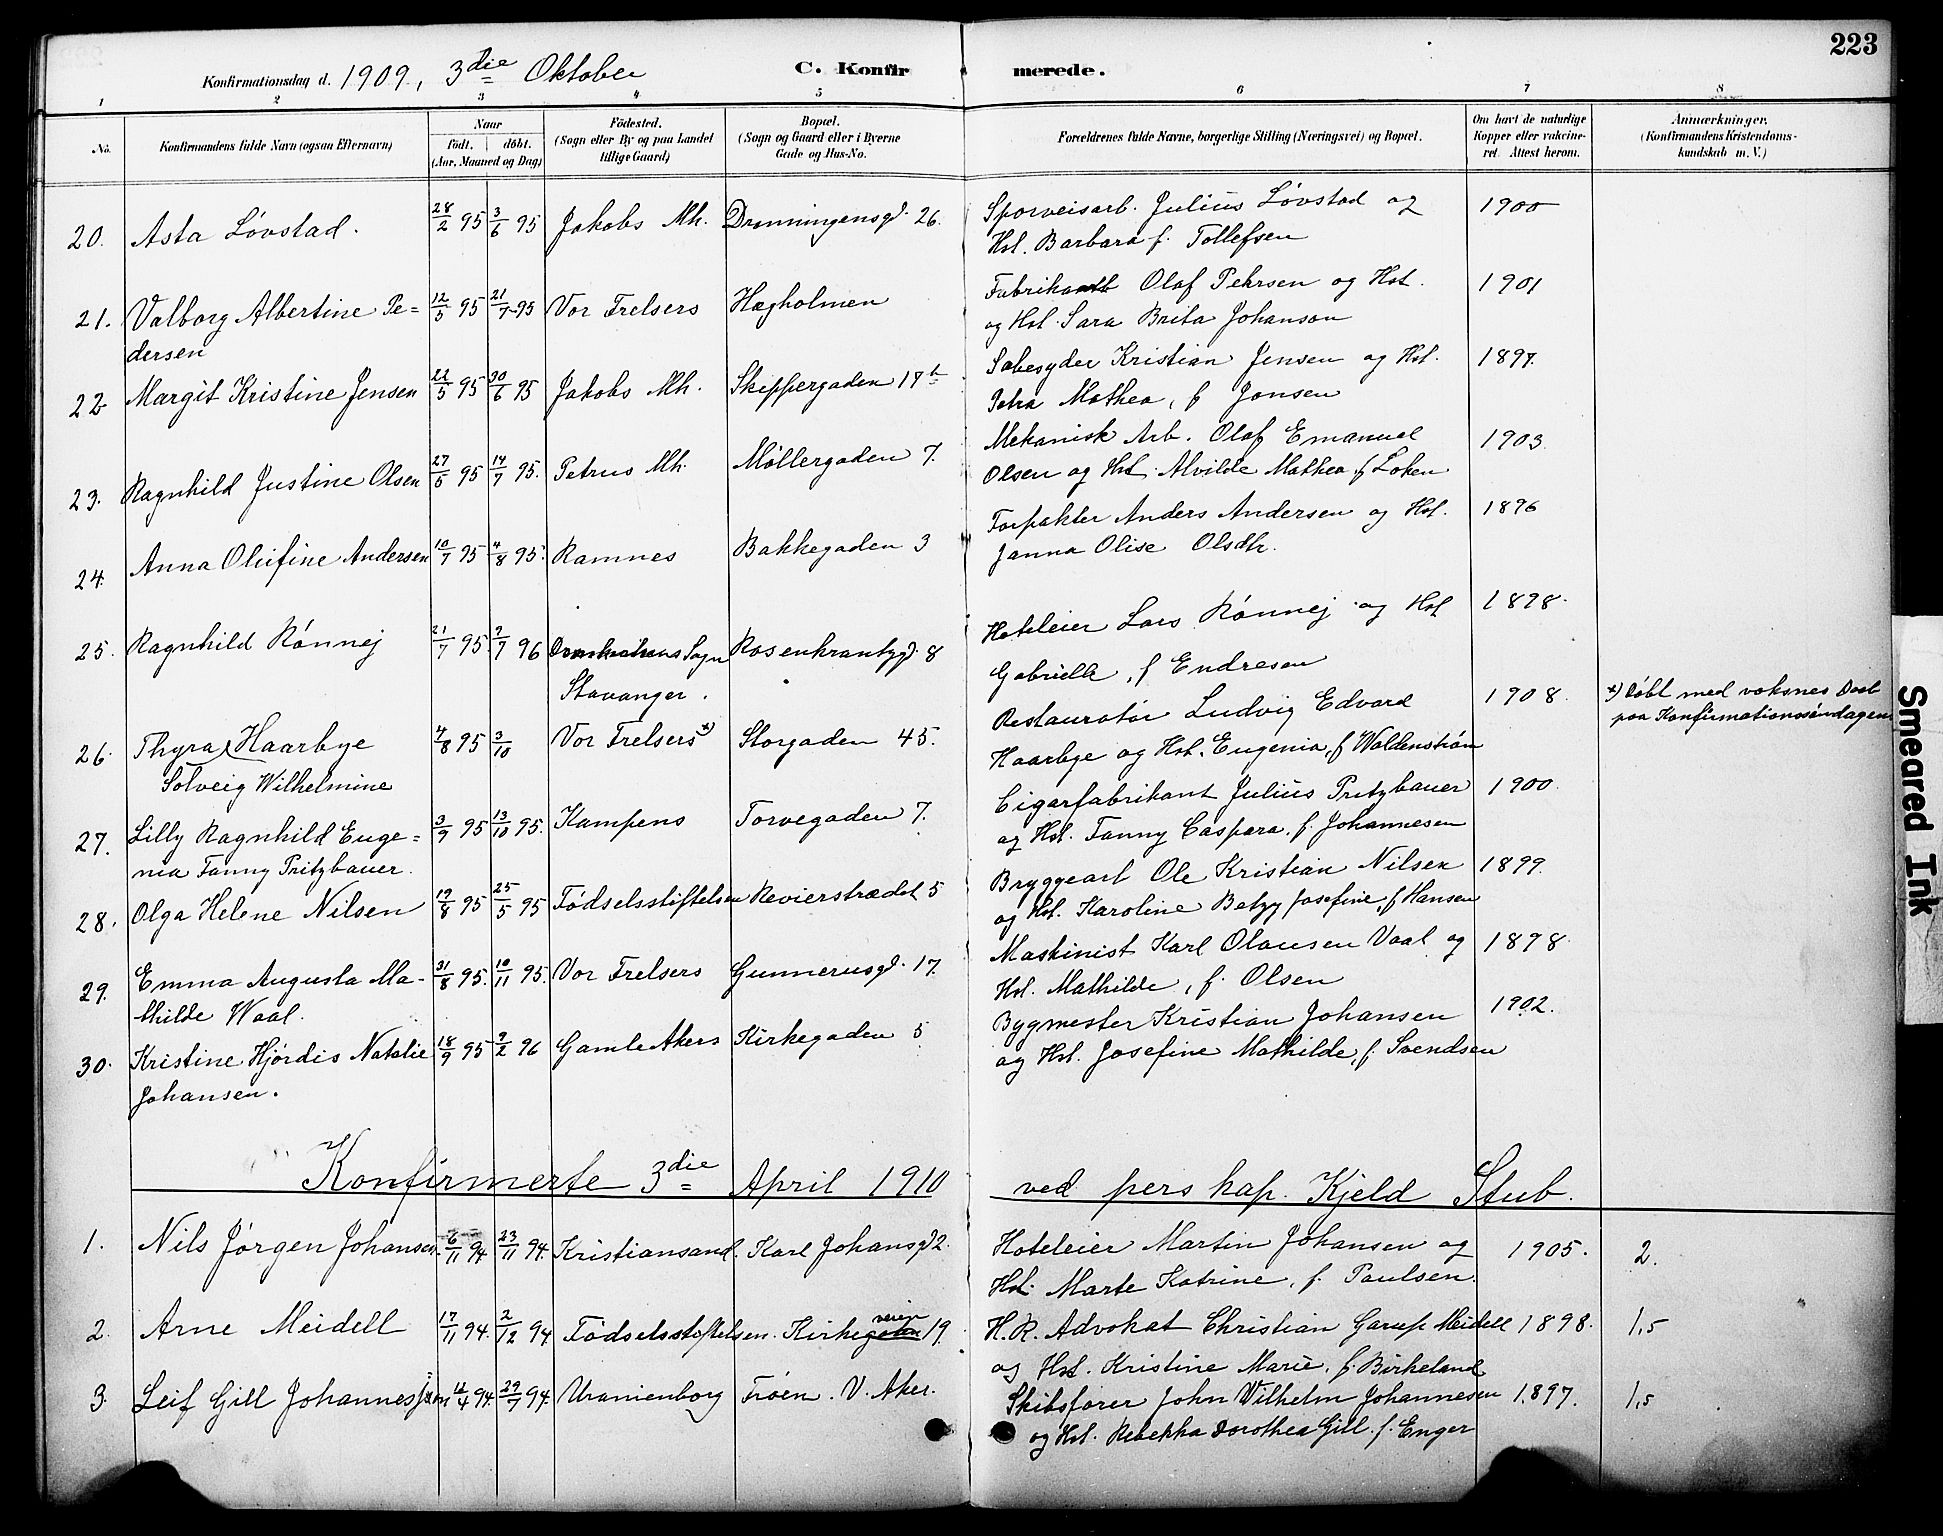 223
Konfirmationsdag d. 1909, 3die Oktober C. Konfirmerede.
1 2 3 4 5 6 7 8
No. Konfirmandens fulde Navn (ogsaa Efternavn) Naar födt. döbt. (Aar, Maaned og Dag) Födested. (Sogn eller By og paa Landet tillige Gaard) Bopæl. (Sogn og Gaard eller i Byerne Gade og Hus-No. Forældrenes fulde Navne, borgerlige Stilling (Næringsvei) og Bopæl. Om havt de naturlige Kopper eller vakcineret. Attest herom. Anmærkninger. (Konfirmandens Kristendomskundskab m. V.)
20. Asta Lövstad. 28/2 95 3/6 95 Jakobs Mh. Dronningensgd. 26. Sporveisarb. Julius Lövstad og 1900
Hst. Barbara f. Tollefsen
21. Valborg Albertine Pe= 12/5 95 21/7 95 Vor Frelsers Hægholmen Olaf Pehrsen og Hst. 1901
dersen og Hst. Sara Brita Johanson
22 Margit Kristine Jensen 22/5 95 30/6 95 Jakobs Mh. Skippergaden 17b Sæbesyder Kristian Jensen og Hst. 1897.
Petra Mathea, f Jonsen
23. Ragnhild Justine Olsen 27/5 95 14/7 95. Petrus Mh. Möllergaden 7. Mekanisk Arb. Olaf Emanuel 1903.
Olsen og Hst. Alvilde Mathea f Loken
24. Anna Olufine Andersen 10/7 95 4/8 95. Ramnes Bakkegaden 3 Forpakter Anders Andersen og Hst. 1896
Janna Olise Olsdtr.
25. Ragnhild Rönnej 21/7 95. 9/7 96 Domkirkens Sogn Rosenkrantzgd. 8 Hoteleier Lars Rönnej og Hst 1898.
Stavanger. Gabrielle, f Endresen
26. Thyra Haarbye 4/8 95 3/10 Vor Frelsers *) Storgaden 45. Restauratör Ludvig Edvard 1908. *) Döbt med voksnes Daab
Solveig Wilhelmine Haarbye og Hst. Eugenia, f Waldenström paa Konfirmationssöndagen
27. Lilly Ragnhild Euge= 3/9 95 13/10 95. Kampens Torvegaden 7. Cigarfabrikant Julius Pritzbauer 1900.
nia Fanny Pritzbauer. og Hst. Fanny Caspara, f. Johannesen
28. Olga Helene Nilsen 19/8 95 25/5 95 Födselsstiftelsen Revierstrædet 5 Bryggearb Ole Kristian Nilsen 1899.
og Hst. Karoline Betzy Josefine, f Hansen
29. Emma Augusta Ma- 31/8 95. 10/11 95. Vor Frelsers Gunnerusgd. 17. Maskinist Karl Olausen Vaal og 1898.
thilde Waal. Hst. Mathilde, f. Olsen
30. Kristine Hjördis Natalie 18/9 95 9/2 96 Gamle Akers Kirkegaden 5 Bygmester Kristian Johansen 1902.
Johansen. og Hst. Josefine Mathilde, f. Svendsen
Konfirmerte 3die April 1910 ved pers kap. Kjeld Stub.
1. Nils Jörgen Johansen 6/11 94 23/11 94. Kristiansand. Karl Johansgd 2. Hoteleier Martin Johansen og 1905. 2.
Hst. Marte Katrine, f. Paulsen.
2. Arne Meidell 17/11 94. 2/12 94 Födselsstiftelsen. Kirkegaden veien 19. H. R. Advokat Christian Garup Meidell 1898. 1,5
og Hst. Kristine Marie, f. Birkeland
3. Leif Gill Johannessen 12/4 94. 29/7 94. Uranienborg Fröen. V. Aker. Skibsförer John Wilhelm Johannesen 1897. 1,5
og Hst. Rebekka Dorothea Gill. f. Enger
Smeared Ink